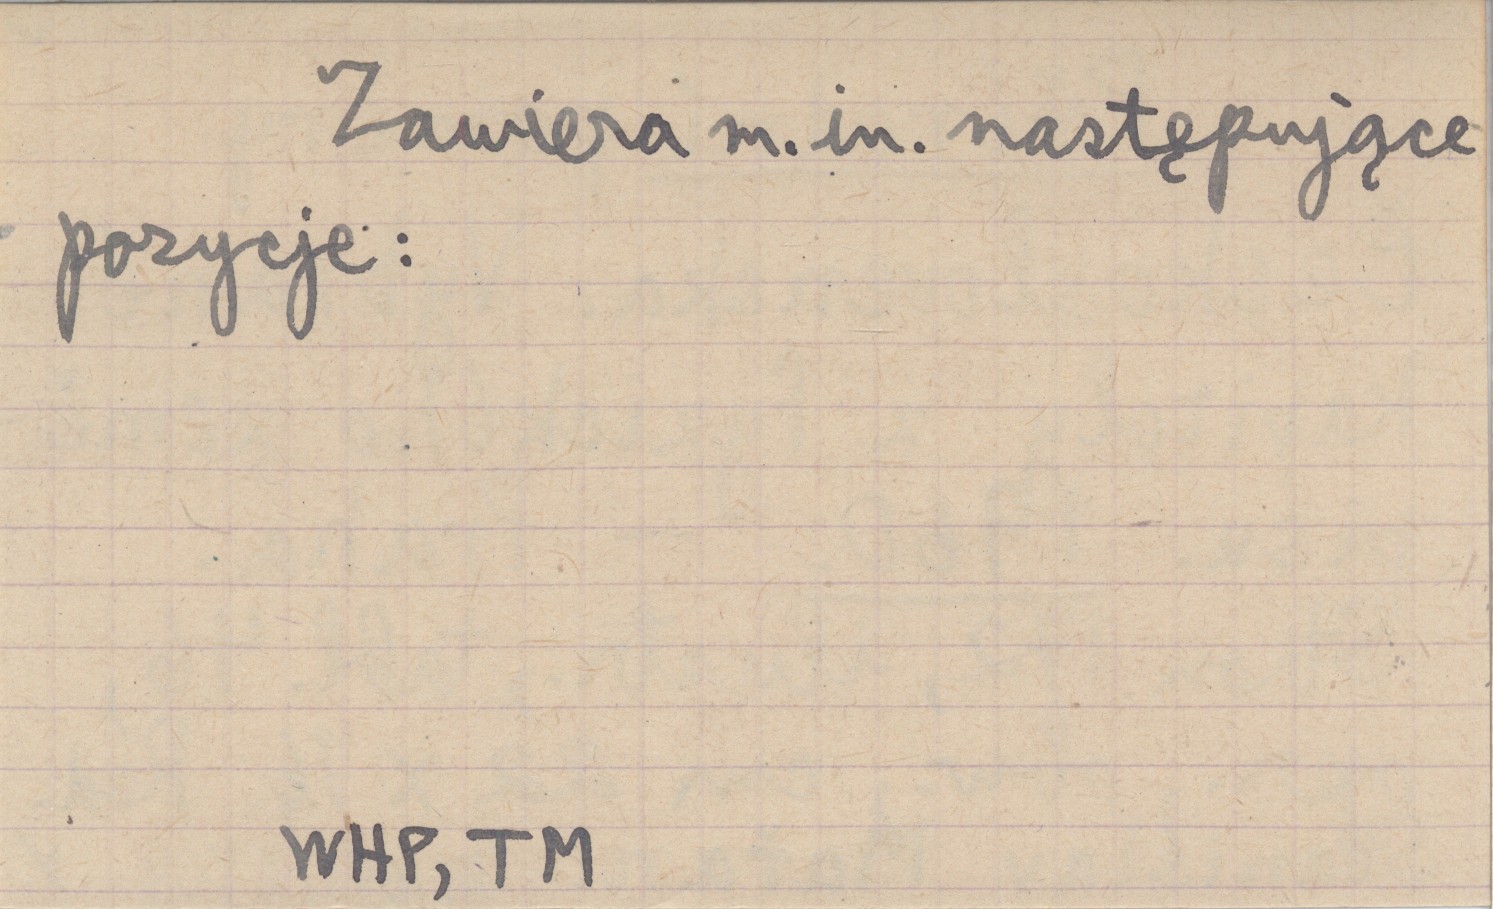 Zawiera m.in. następujące
pozycje:
WHP, TM